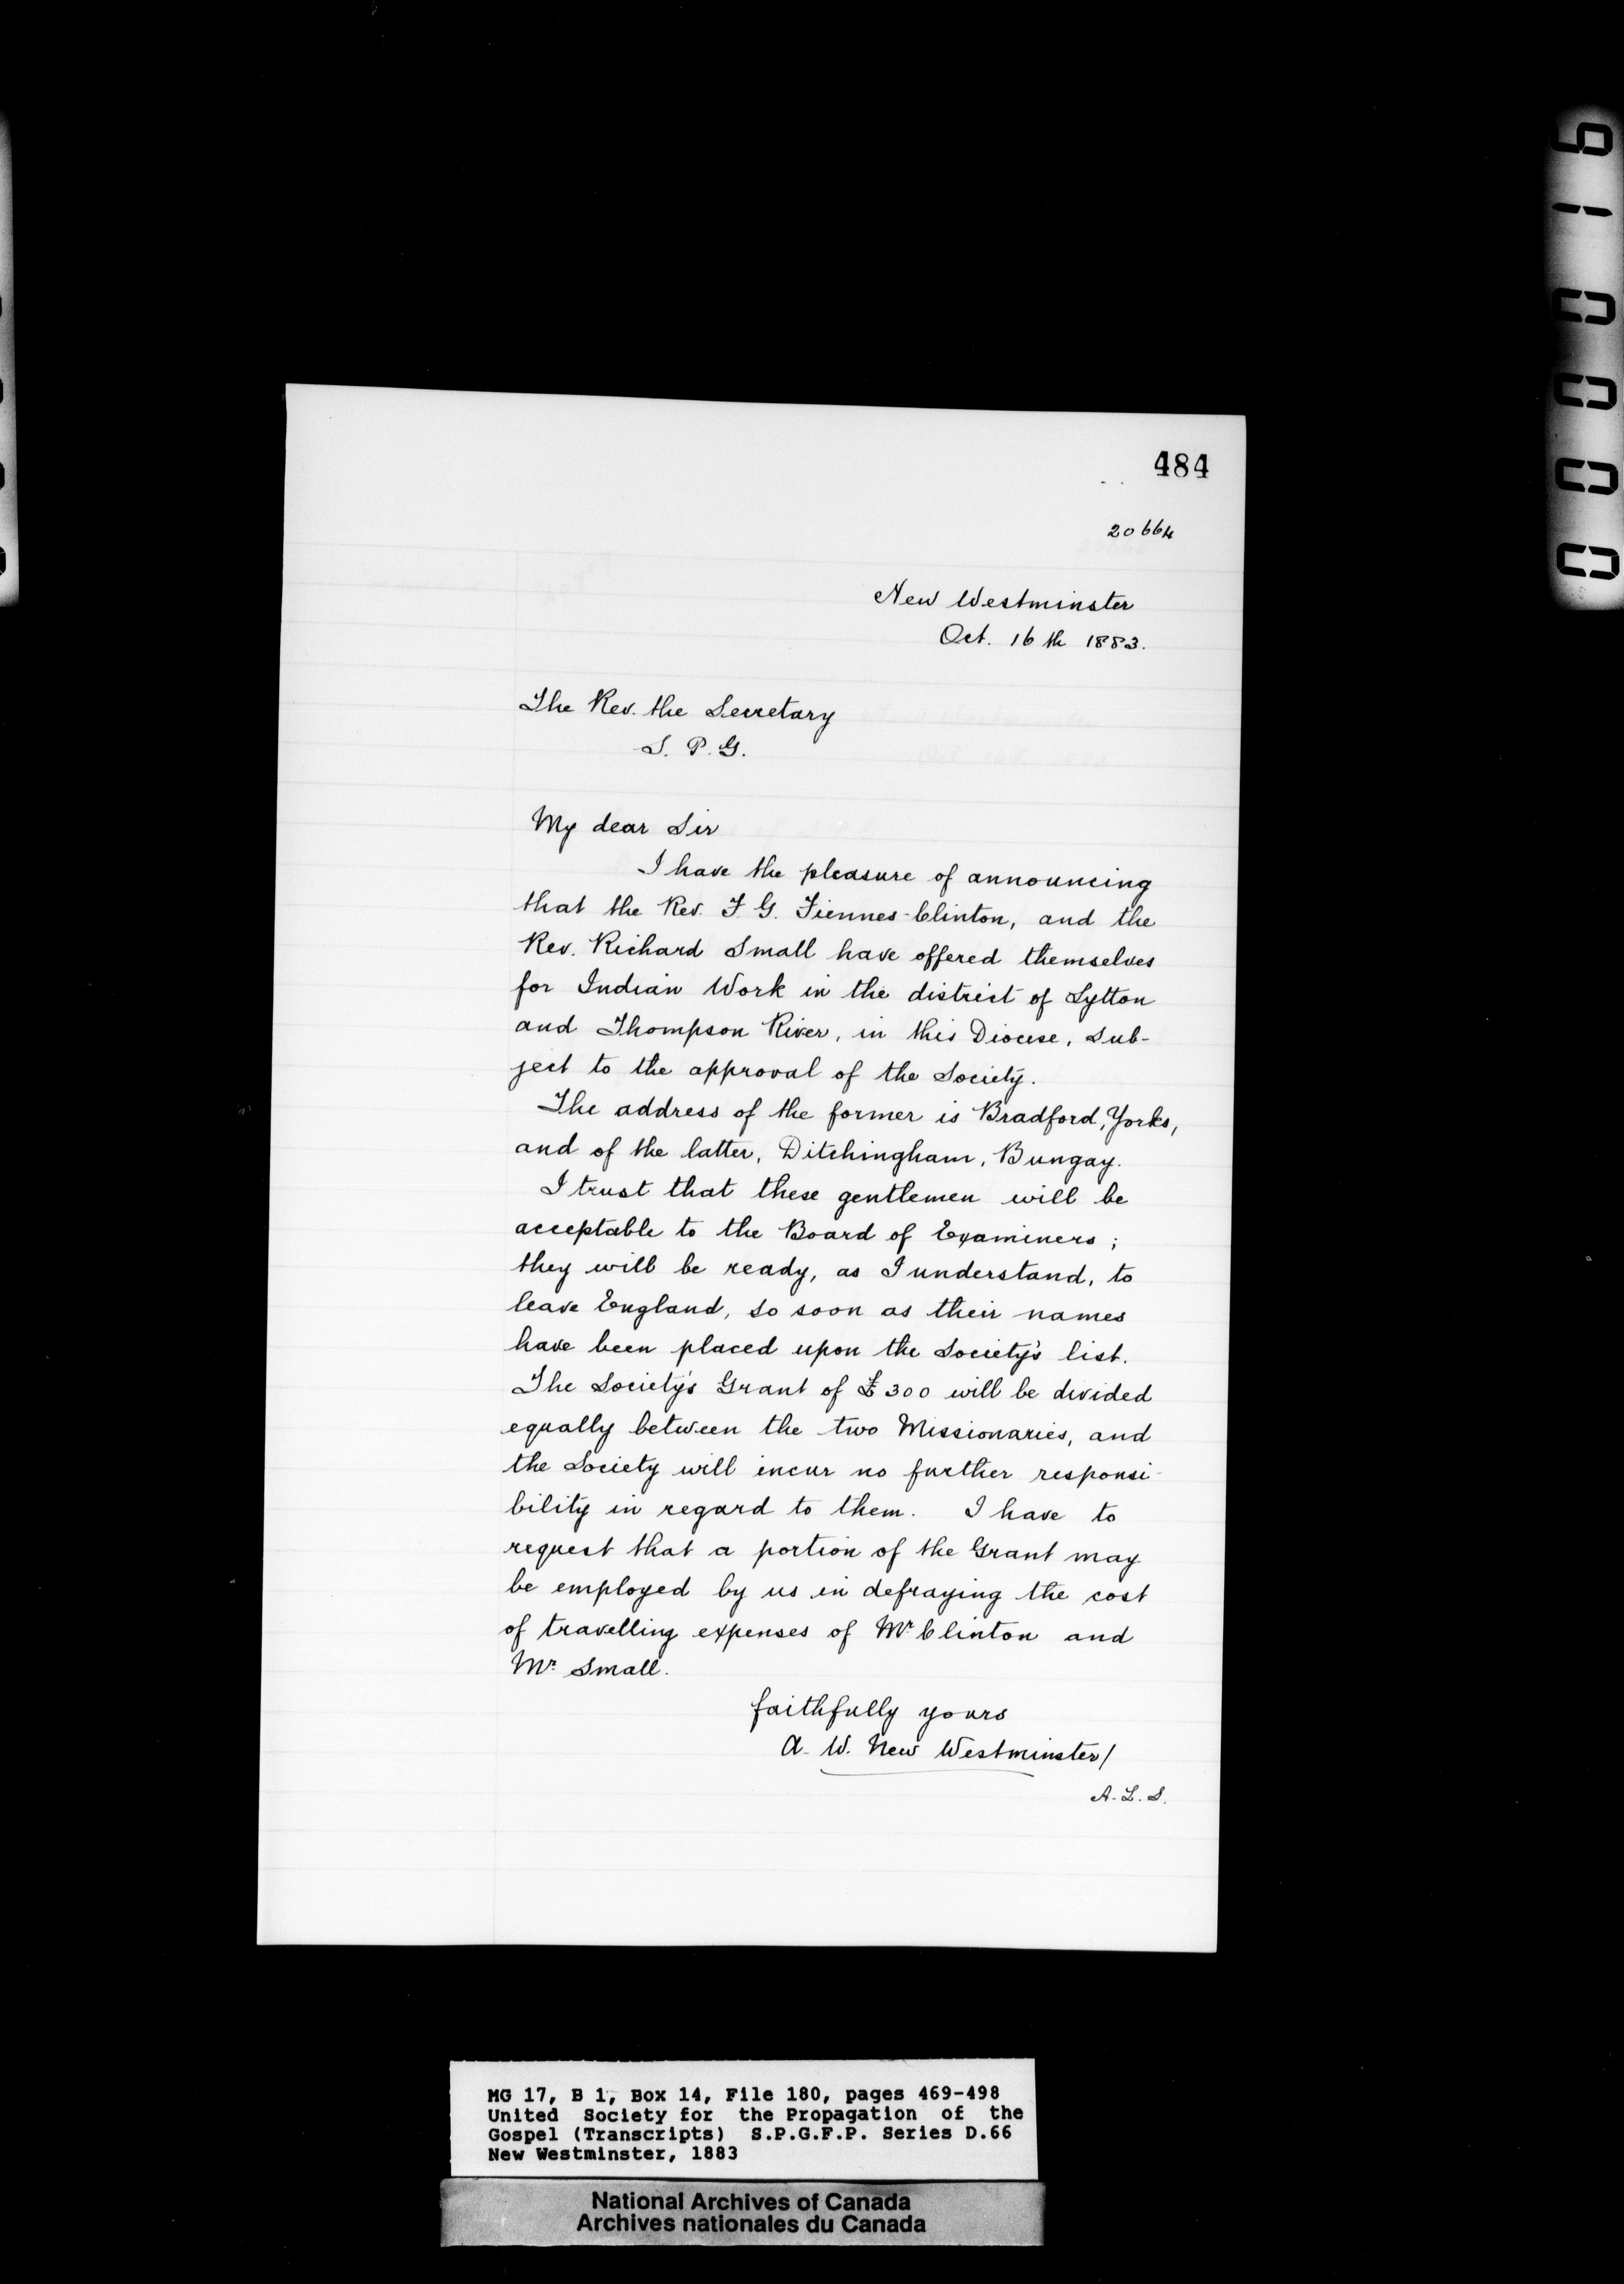 484
20664
New Westminster
Oct. 16th 1883.
The Rev. the Secretary
S. P. G.
My dear Sir
I have the pleasure of announcing
that the Rev. F. G. Fiennes-Clinton, and the
Rev. Richard Small have offered themselves
for Indian Work in the district of Lytton
and Thompson River, in this Diocese, sub-
ject to the approval of the Society.
The address of the former is Bradford, Yorks,
and of the latter, Ditchingham, Bungay.
I trust that these gentlemen will be
acceptable to the Board of Examiners;
they will be ready, as I understand, to
leave England, so soon as their names
have been placed upon the Society's list.
The Society's Grant of £300 will be divided
equally between the two Missionaries, and
the Society will incur no further responsi-
bility in regard to them. I have to
request that a portion of the Grant may
be employed by us in defraying the cost
of travelling expenses of Mr Clinton and
Mr. Small.
faithfully yours
A. W. New Westminster/
A. L. S.
MG 17, B 1, Box 14, File 180, pages 469-498
United Society for the Propagation of the
Gospel (Transcripts) S.P.G.F.P. Series D.66
New Westminster, 1883
National Archives of Canada
Archives nationales du Canada